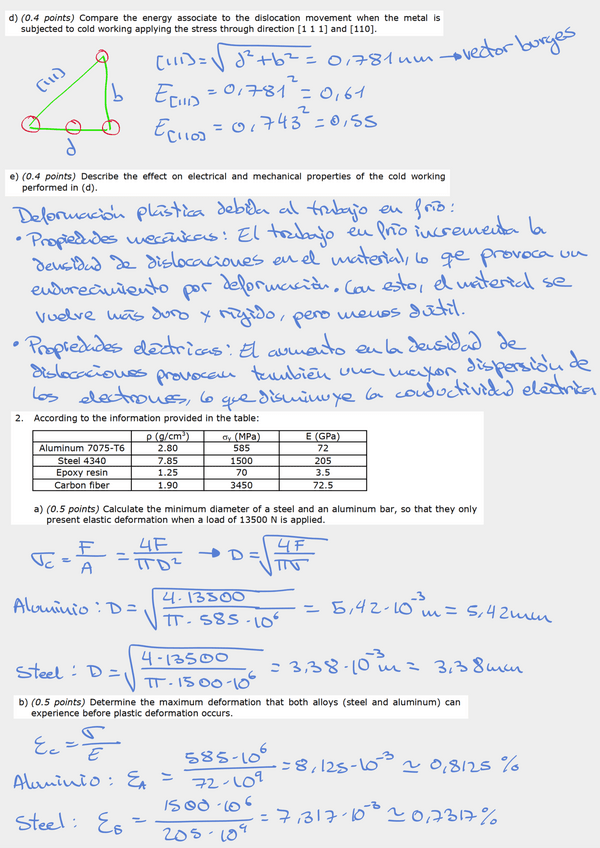 d) (0.4 points) Compare the energy associate to the dislocation movement when the metal is
subjected to cold working applying the stress through direction [1 1 1] and [110].
[111] = √d²+b² = 0,781 nm → vector burges
(111)
b
d
E[111] = 0,781² = 0,61
E[110] = 0,743² = 0,55
e) (0.4 points) Describe the effect on electrical and mechanical properties of the cold working
performed in (d).
Deformación plástica debida al trabajo en frío:
• Propiedades mecánicas: El trabajo en frío incrementa la
densidad de dislocaciones en el material, lo qe provoca un
endurecimiento por deformación. Con esto, el material se
vuelve más duro y rígido, pero menos dúctil.
• Propiedades eléctricas: El aumento en la densidad de
dislocaciones provocan también una mayor dispersión de
los electrones, lo que disminuye la conductividad eléctrica
2. According to the information provided in the table:
ρ (g/cm³) σy (MPa) E (GPa)
Aluminum 7075-T6 2.80 585 72
Steel 4340 7.85 1500 205
Epoxy resin 1.25 70 3.5
Carbon fiber 1.90 3450 72.5
a) (0.5 points) Calculate the minimum diameter of a steel and an aluminum bar, so that they only
present elastic deformation when a load of 13500 N is applied.
σc = F/A = 4F/πD² → D = √4F/πσ
Aluminio: D = √4·13500/π·585·10⁶ = 5,42·10⁻³ m = 5,42mm
Steel: D = √4·13500/π·1500·10⁶ = 3,38·10⁻³ m = 3,38mm
b) (0.5 points) Determine the maximum deformation that both alloys (steel and aluminum) can
experience before plastic deformation occurs.
εc = σ/E
Aluminio: εA = 585·10⁶/72·10⁹ = 8,125·10⁻³ ≃ 0,8125 %
Steel: εs = 1500·10⁶/205·10⁹ = 7,317·10⁻³ ≃ 0,7317%